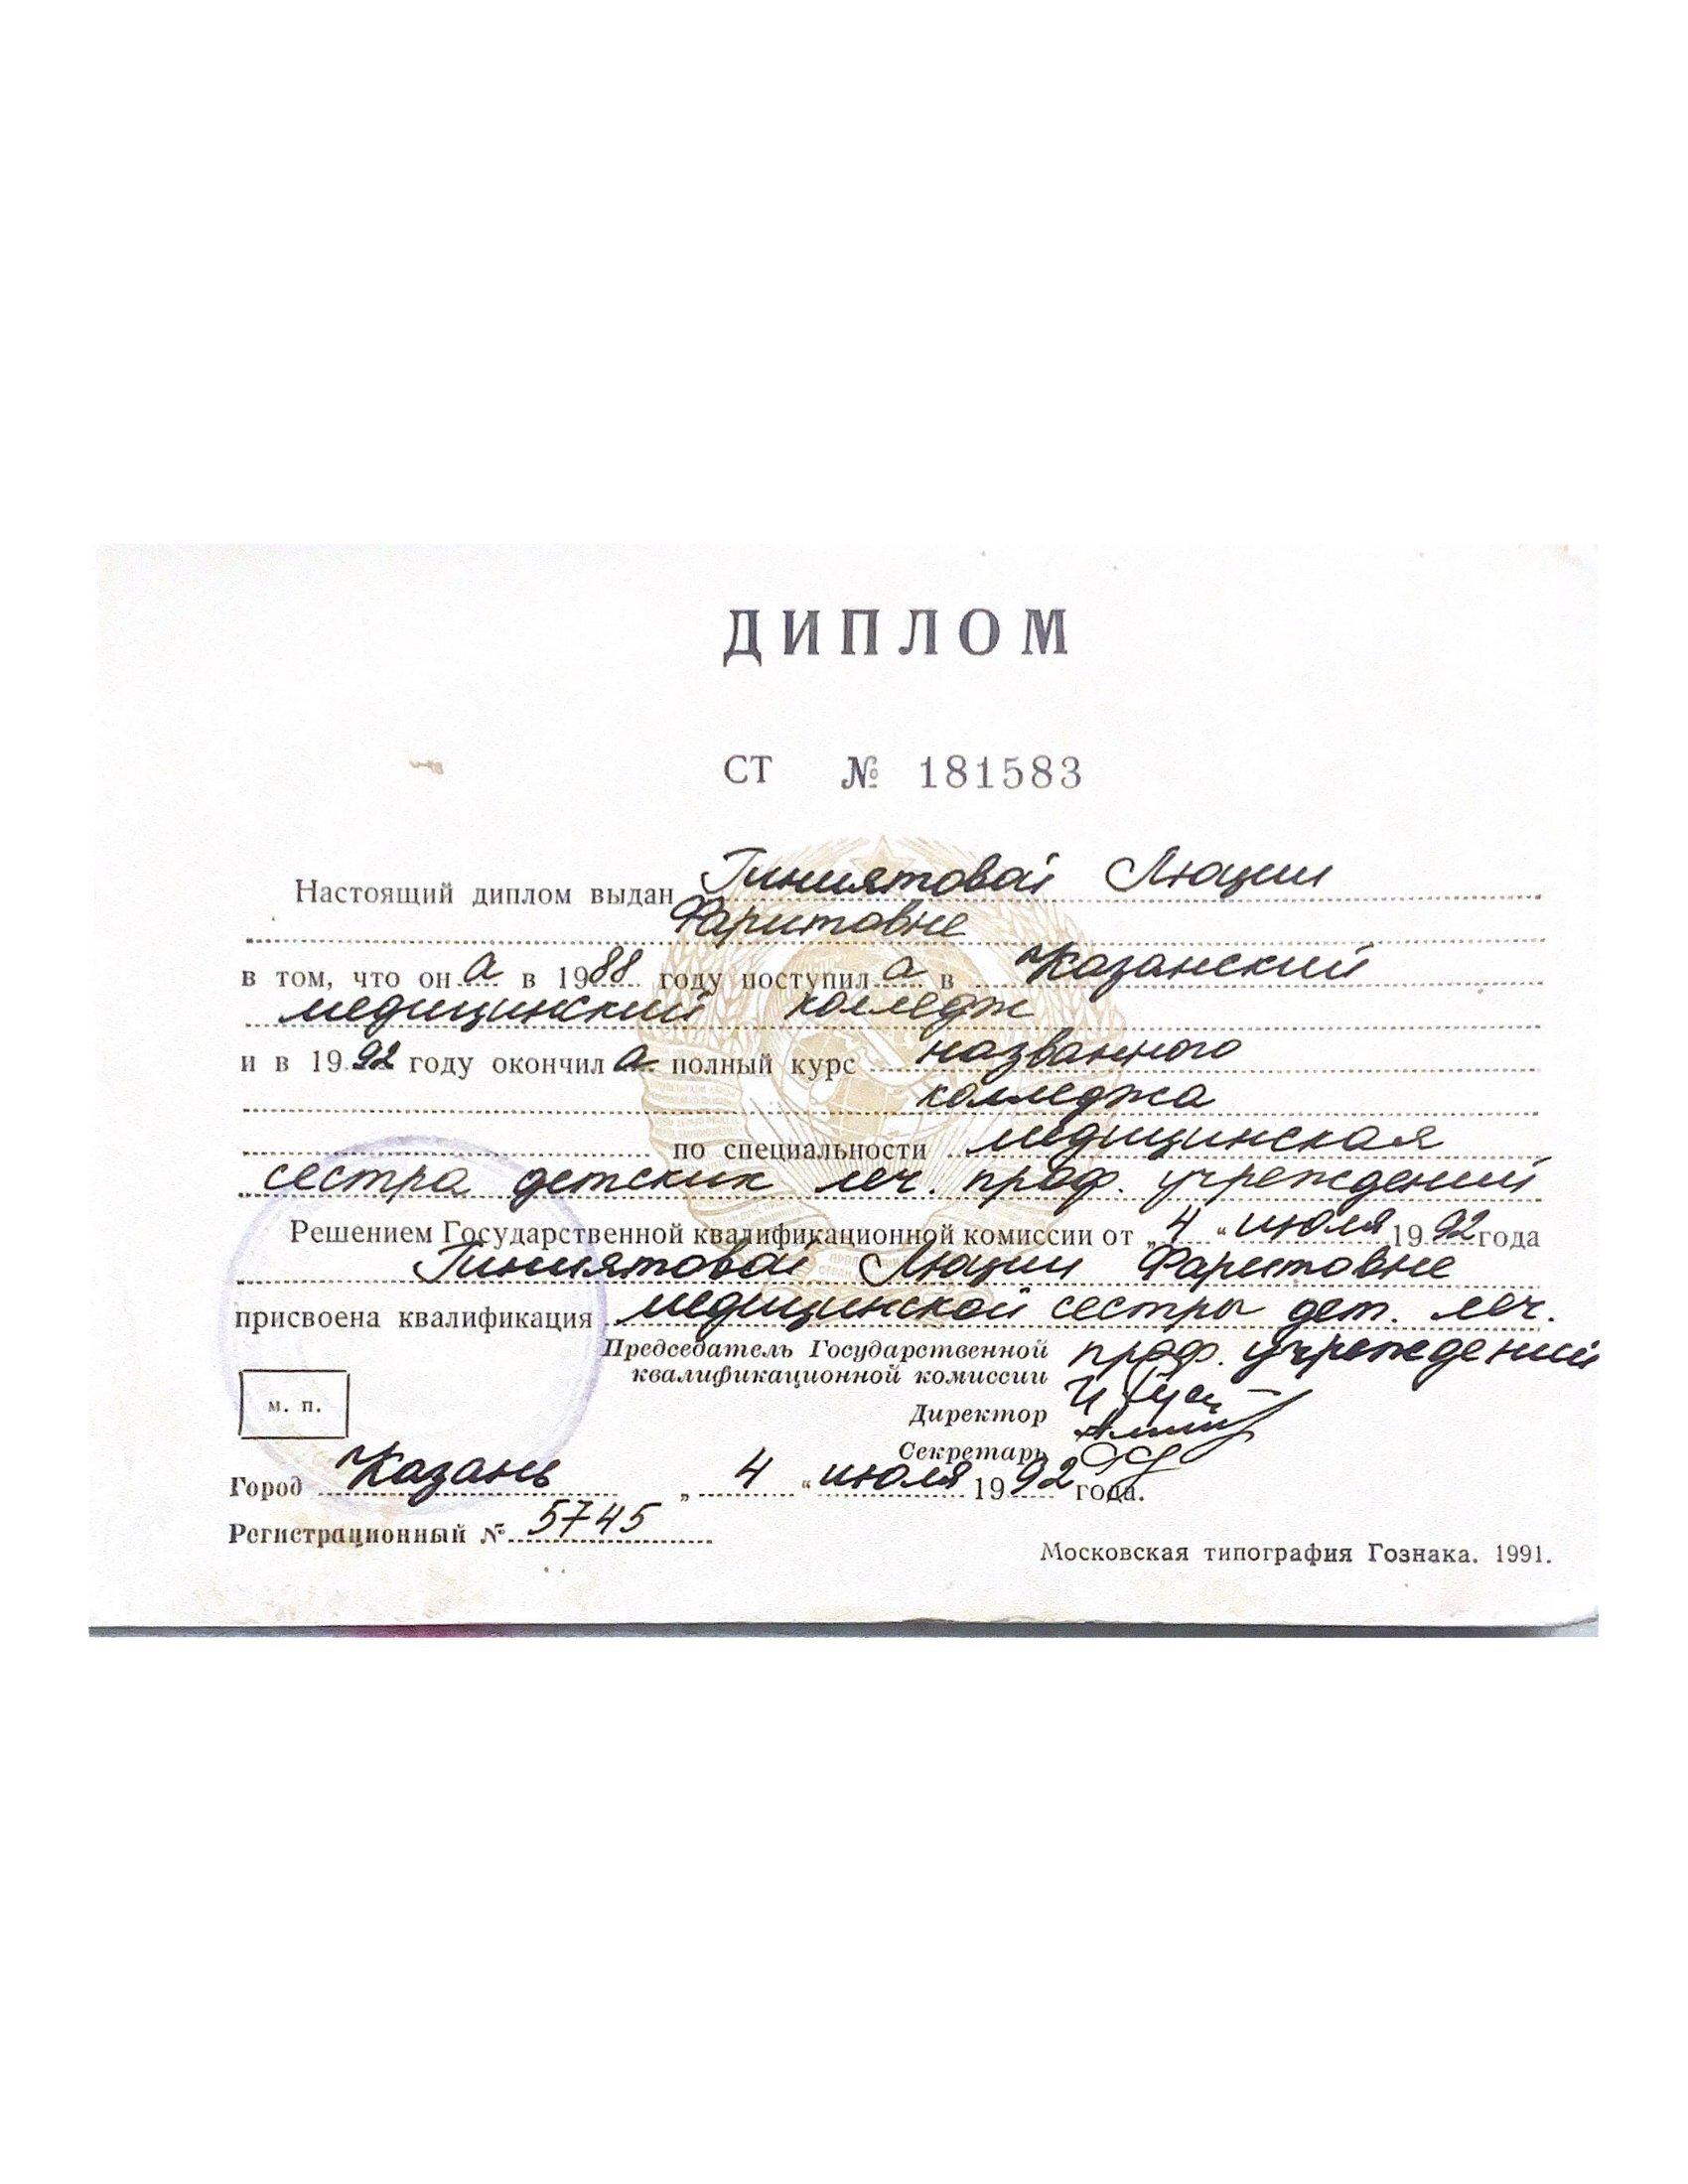 ДИПЛОМ
СТ № 181583
Настоящий диплом выдан Гиниятовой Люции
Фаритовне
в том, что она в 1988 году поступила в Казанский
медицинский колледж
и в 1992 году окончила полный курс названного
колледжа
по специальности медицинская
сестра детских леч. проф. учреждений
Решением Государственной квалификационной комиссии от „4“ июля 1992 года
Гиниятовой Люции Фаритовне
присвоена квалификация медицинской сестры дет. леч.
проф. учреждений
Председатель Государственной
квалификационной комиссии
Директор
Секретарь
м. п.
Город Казань „4“ июля 1992 года.
Регистрационный № 5745
Московская типография Гознака. 1991.